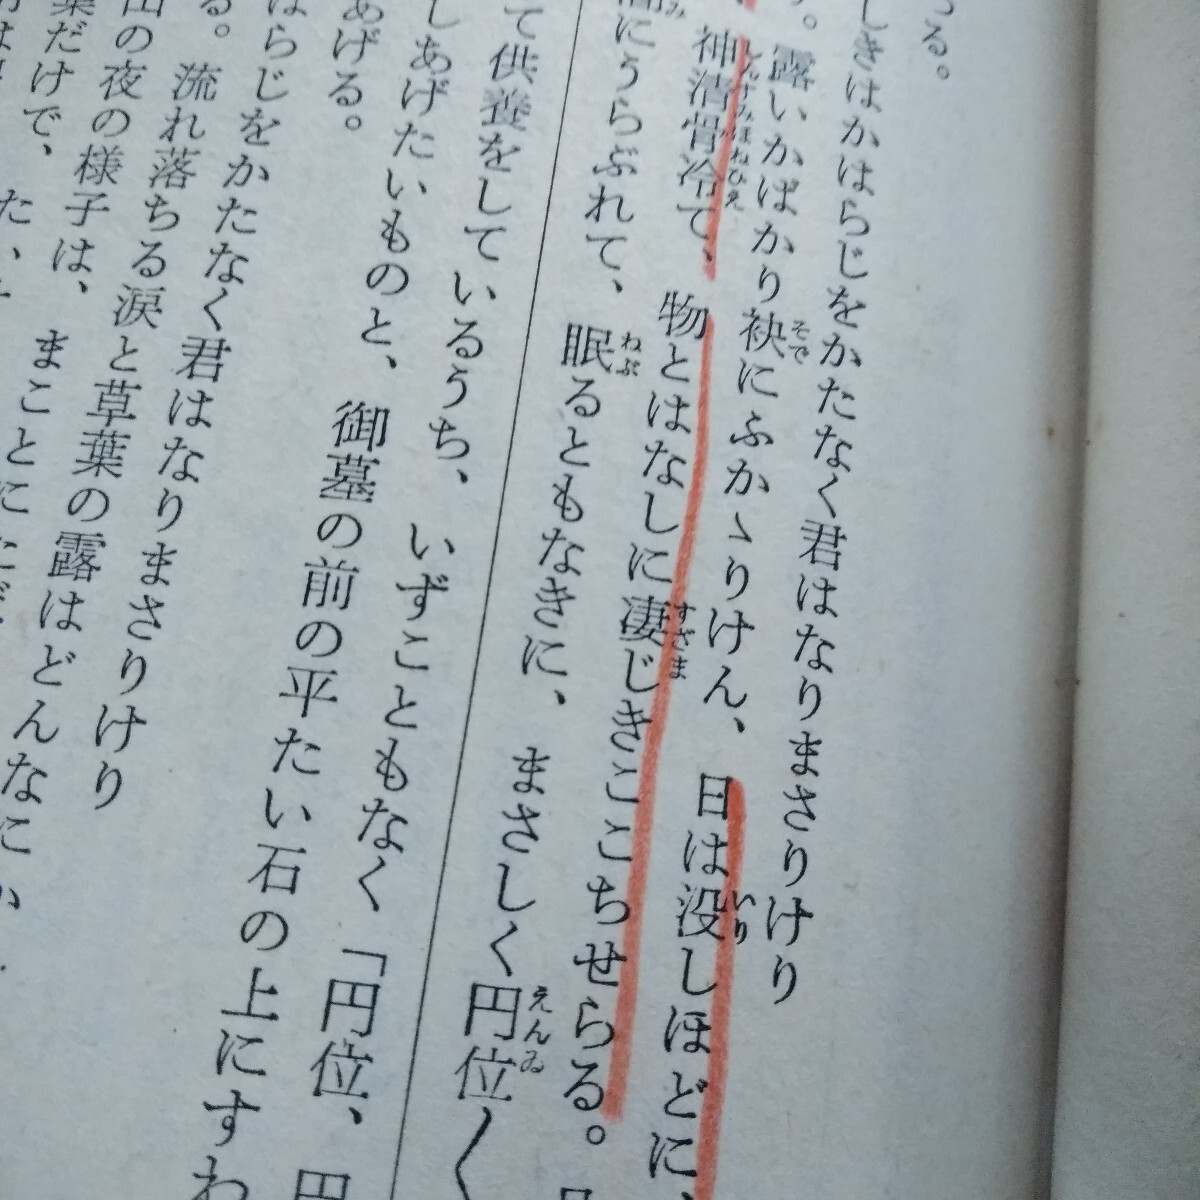 つる。
しきはかはらじをかたなく君はなりまさりけり
。露いかばかり袂にふかゝりけん、日は没しほどに、
神清骨冷て、物とはなしに凄じきここちせらる。
にうらぶれて、眠るともなきに、まさしく円位〱
て供養をしているうち、いずこともなく「円位、円
しあげたいものと、御墓の前の平たい石の上にすわ
あげる。
はらじをかたなく君はなりまさりけり
る。流れ落ちる涙と草葉の露はどんなにか
山の夜の様子は、まことに
葉だけで、